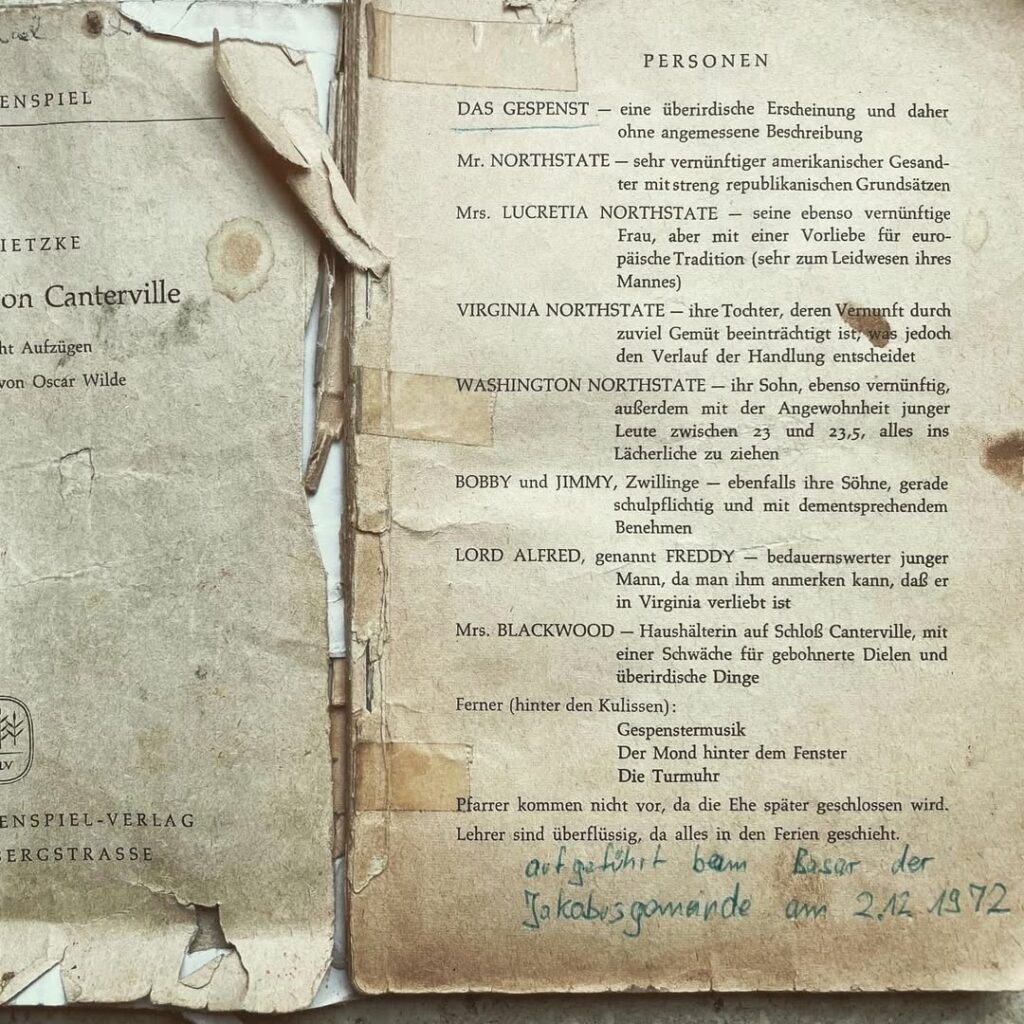 ENSPIEL
IETZKE
on Canterville
ht Aufzügen
von Oscar Wilde
LV
ENSPIEL-VERLAG
BERGSTRASSE
PERSONEN
DAS GESPENST — eine überirdische Erscheinung und daher
ohne angemessene Beschreibung
Mr. NORTHSTATE — sehr vernünftiger amerikanischer Gesand-
ter mit streng republikanischen Grundsätzen
Mrs. LUCRETIA NORTHSTATE — seine ebenso vernünftige
Frau, aber mit einer Vorliebe für euro-
päische Tradition (sehr zum Leidwesen ihres
Mannes)
VIRGINIA NORTHSTATE — ihre Tochter, deren Vernunft durch
zuviel Gemüt beeinträchtigt ist, was jedoch
den Verlauf der Handlung entscheidet
WASHINGTON NORTHSTATE — ihr Sohn, ebenso vernünftig,
außerdem mit der Angewohnheit junger
Leute zwischen 23 und 23,5, alles ins
Lächerliche zu ziehen
BOBBY und JIMMY, Zwillinge — ebenfalls ihre Söhne, gerade
schulpflichtig und mit dementsprechendem
Benehmen
LORD ALFRED, genannt FREDDY — bedauernswerter junger
Mann, da man ihm anmerken kann, daß er
in Virginia verliebt ist
Mrs. BLACKWOOD — Haushälterin auf Schloß Canterville, mit
einer Schwäche für gebohnerte Dielen und
überirdische Dinge
Ferner (hinter den Kulissen):
Gespenstermusik
Der Mond hinter dem Fenster
Die Turmuhr
Pfarrer kommen nicht vor, da die Ehe später geschlossen wird.
Lehrer sind überflüssig, da alles in den Ferien geschieht.
aufgeführt beim Basar der
Jakobusgemeinde am 2.12 1972